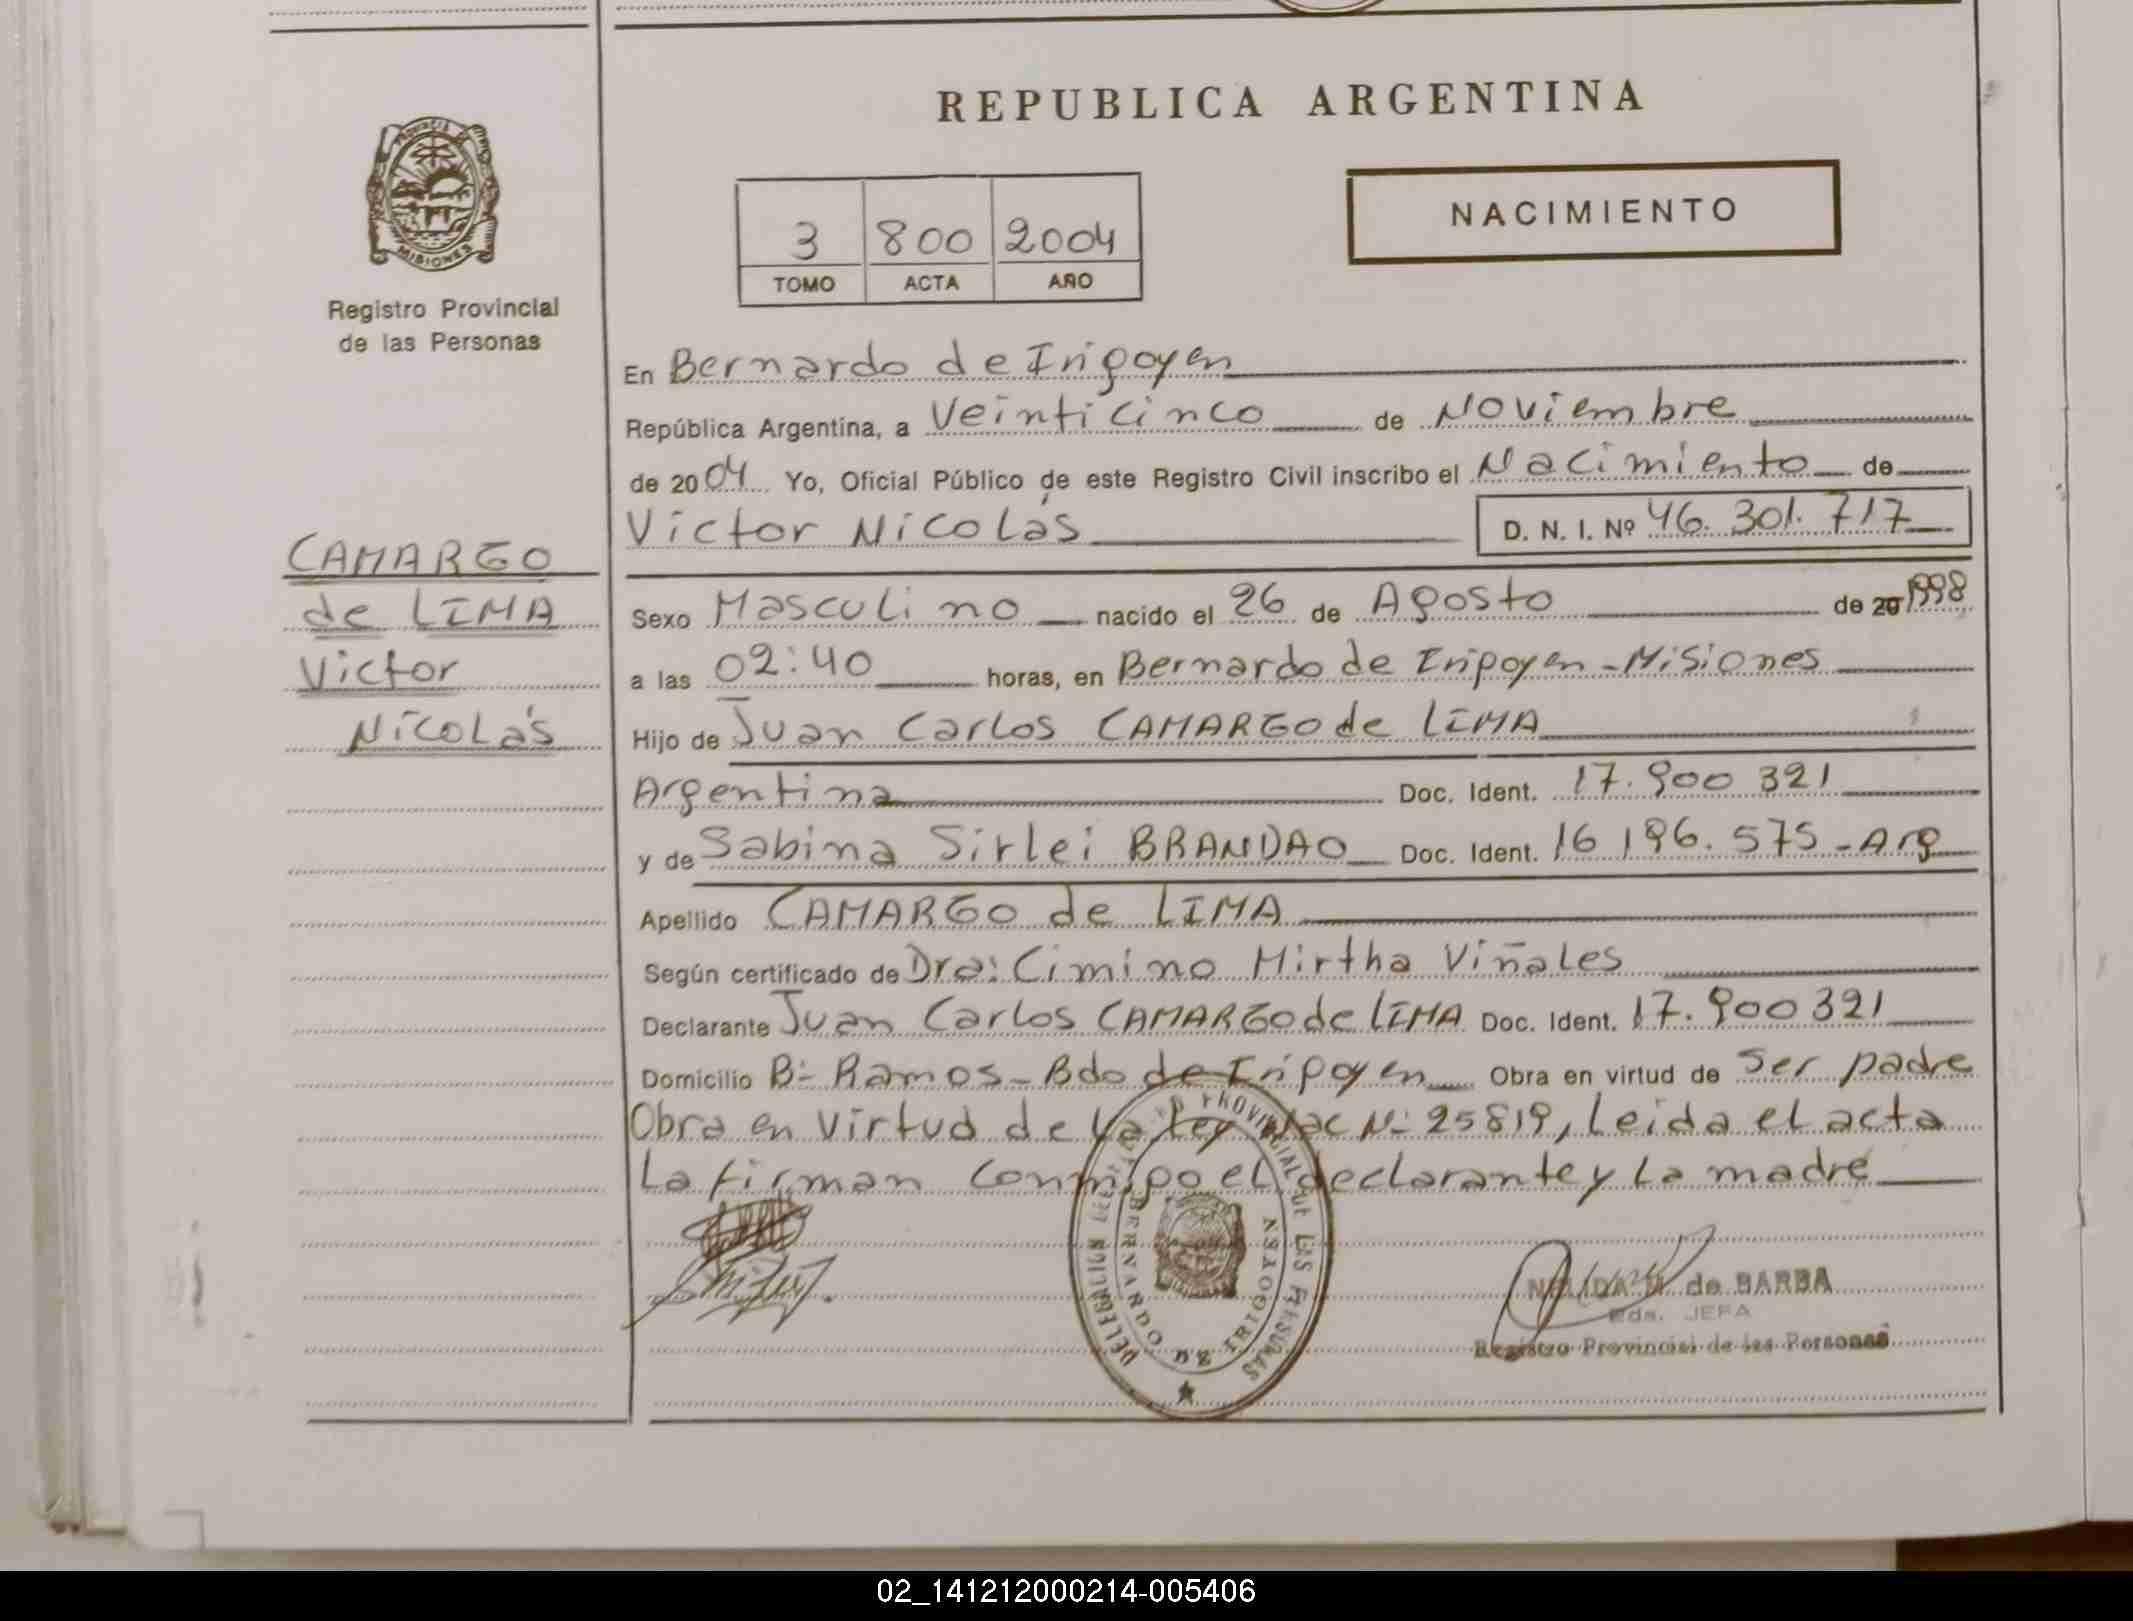 REPUBLICA ARGENTINA
NACIMIENTO
3 800 2004
TOMO ACTA AÑO
PROVINCIA DE
MISIONES
Registro Provincial
de las Personas
En Bernardo de Irigoyen
República Argentina, a Veinticinco de Noviembre
de 2004 Yo, Oficial Público de este Registro Civil inscribo el Nacimiento de
Victor Nicolás D. N. I. Nº 46.301.717
CAMARGO
de LIMA
Victor
Nicolás
Sexo Masculino nacido el 26 de Agosto de 20 1998
a las 02:40 horas, en Bernardo de Irigoyen - Misiones
Hijo de Juan Carlos CAMARGO de LIMA
Argentina Doc. Ident. 17.900 321
y de Sabina Sirlei BRANDAO Doc. Ident. 16 196.575 - Arg
Apellido CAMARGO de LIMA
Según certificado de Dra: Cimino Mirtha Viñales
Declarante Juan Carlos CAMARGO de LIMA Doc. Ident. 17.900 321
Domicilio Bº Ramos - Bdo de Irigoyen Obra en virtud de Ser padre
Obra en Virtud de la Ley Nac Nº 25819, Leida el acta
La firman conmigo el declarante y La madre
DELEGACION PROVINCIAL DE LAS PERSONAS
BERNARDO DE IRIGOYEN
NELIDA M. de BARBA
JEFA
Registro Provincial de las Personas
02_141212000214-005406